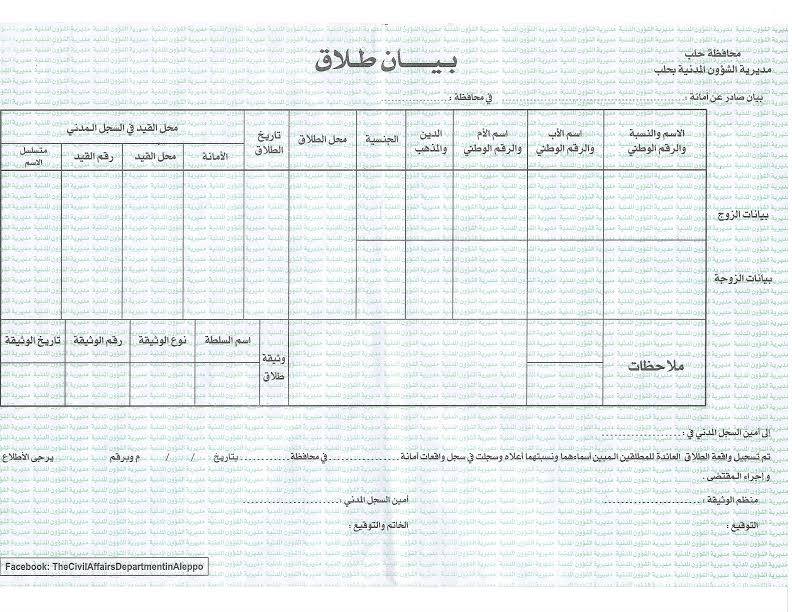 محافظة حلب
مديرية الشؤون المدنية بحلب
بيـــان طـلاق
بيان صادر عن أمانة : ........................ في محافظة : ........................
الاسم والنسبة والرقم الوطني
اسم الأب والرقم الوطني
اسم الأم والرقم الوطني
الدين والمذهب
الجنسية
محل الطلاق
تاريخ الطلاق
محل القيد في السجل المدني
الأمانة
محل القيد
رقم القيد
متسلسل الاسم
بيانات الزوج
بيانات الزوجة
ملاحظات
وثيقة طلاق
اسم السلطة
نوع الوثيقة
رقم الوثيقة
تاريخ الوثيقة
إلى أمين السجل المدني في : ........................
تم تسجيل واقعة الطلاق العائدة للمطلقين المبين أسماءهما ونسبتهما أعلاه وسجلت في سجل واقعات أمانة .................... في محافظة .............. بتاريخ / / م وبرقم يرجى الأطلاع
و إجراء المقتضى .
منظم الوثيقة : ........................ أمين السجل المدني : ........................
التوقيع : الخاتم والتوقيع :
Facebook: TheCivilAffairsDepartmentinAleppo